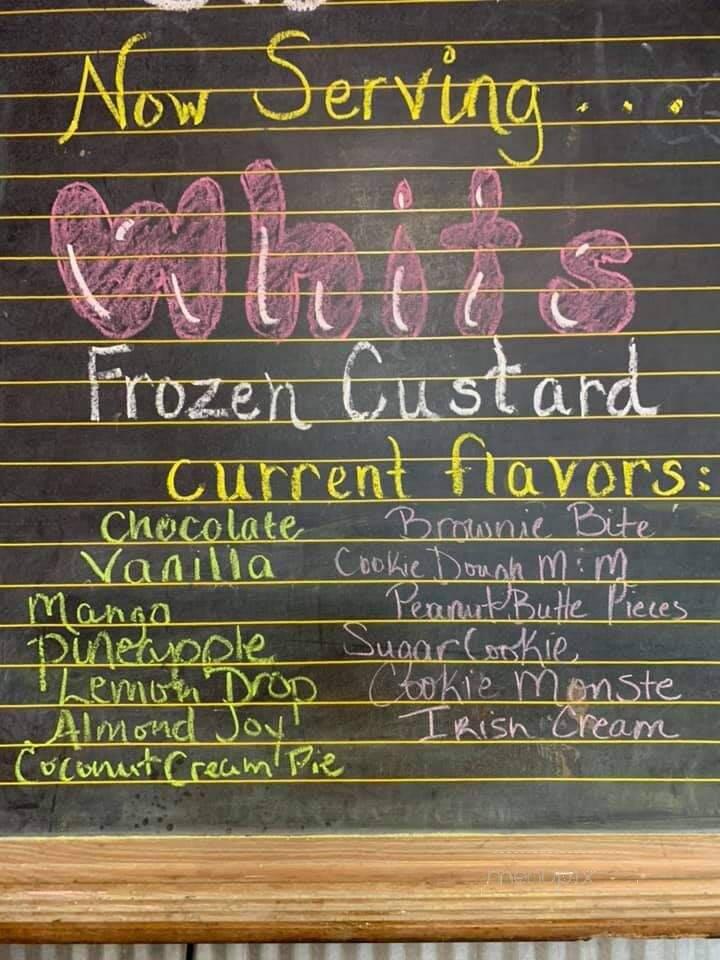 Now Serving...
Whits
Frozen Custard
current flavors:
Chocolate
Vanilla
Mango
pineapple
Lemon Drop
Almond Joy
Coconut Cream Pie
Brownie Bite
Cookie Dough M:M
Peanut Butte Pieces
Sugar Cookie
Cookie Monste
Irish Cream
menupix